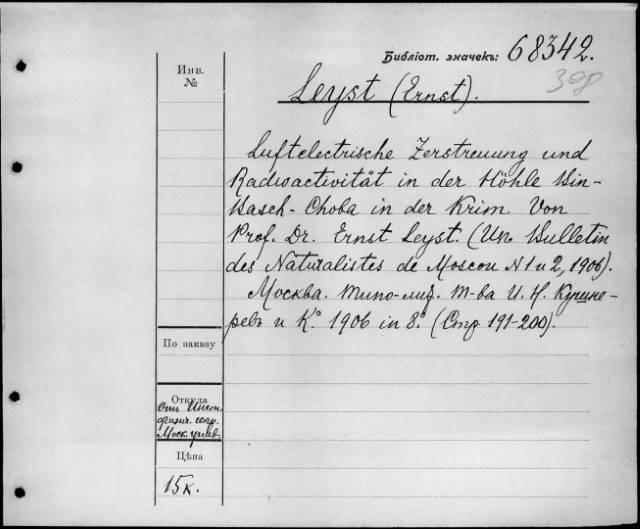 Библіот. значекъ: 68342.
398
Инв.
№
Leyst (Ernst).
Luftelectrische Zerstreuung und
Radioactivität in der Höhle Bin-
Basch-Choba in der Krim. Von
Prof. Dr. Ernst Leyst. (Из Bulletin
des Naturalistes de Moscou N 1 и 2, 1906).
Москва. Типо-лит. Т-ва И. Н. Кушне-
ревъ и Кº 1906 in 8º. (Стр 191-200).
По заказу
Откуда
Отъ Инст.
физич. геогр.
Моск. унив.
Цѣна
15 к.